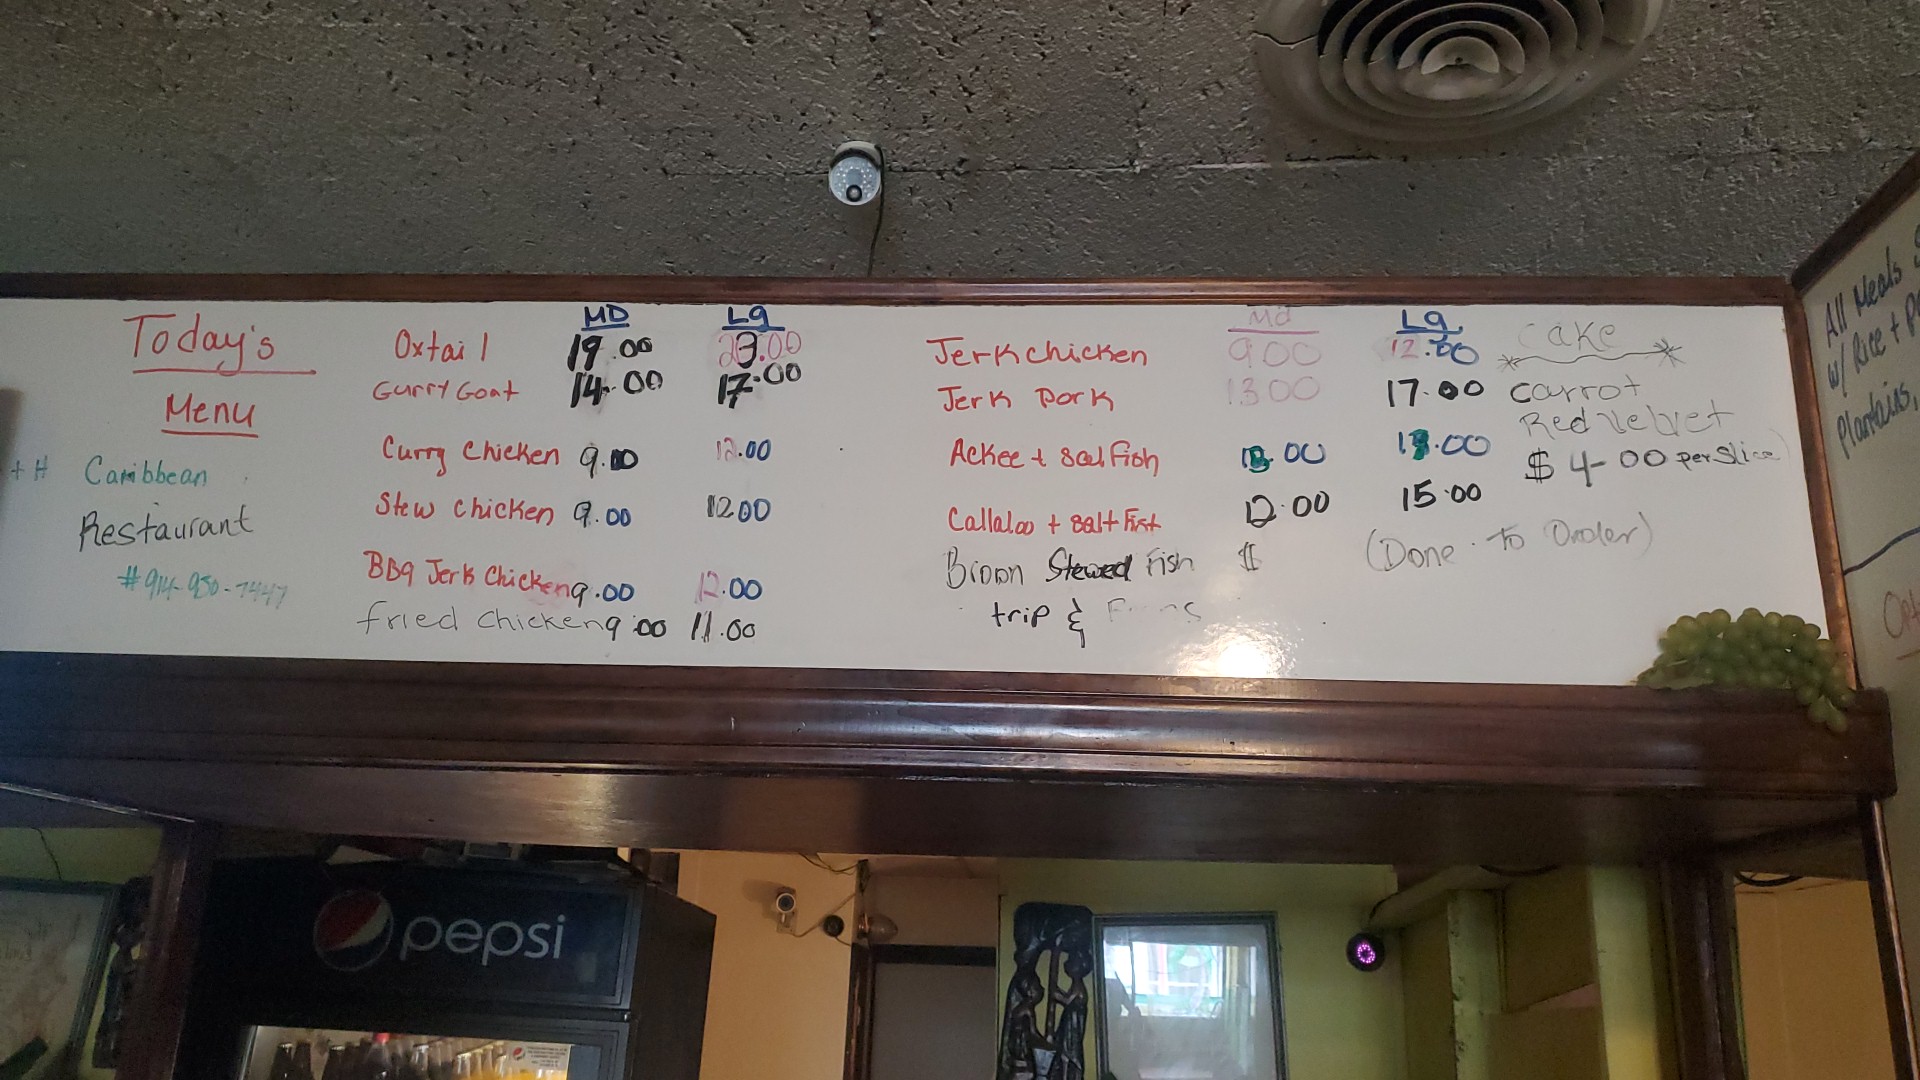 Today's
Menu
+ H Caribbean
Restaurant
#914-930-7447
MD Lg
Oxtail 19.00 23.00
Curry Goat 14.00 17.00
Curry Chicken 9.00 12.00
Stew chicken 9.00 12.00
BBq Jerk Chicken 9.00 12.00
fried chicken 9.00 11.00
Md Lg
Jerk chicken 9.00 12.00
Jerk Pork 13.00 17.00
Ackee + Salt Fish .00 .00
Callaloo + Salt Fish 12.00 15.00
Brown Stewed Fish $ (Done To Order)
trip &
Cake
Carrot
Red Velvet
$ 4-00 per Slice
All Meals
w/ Rice +
Plantains,
pepsi